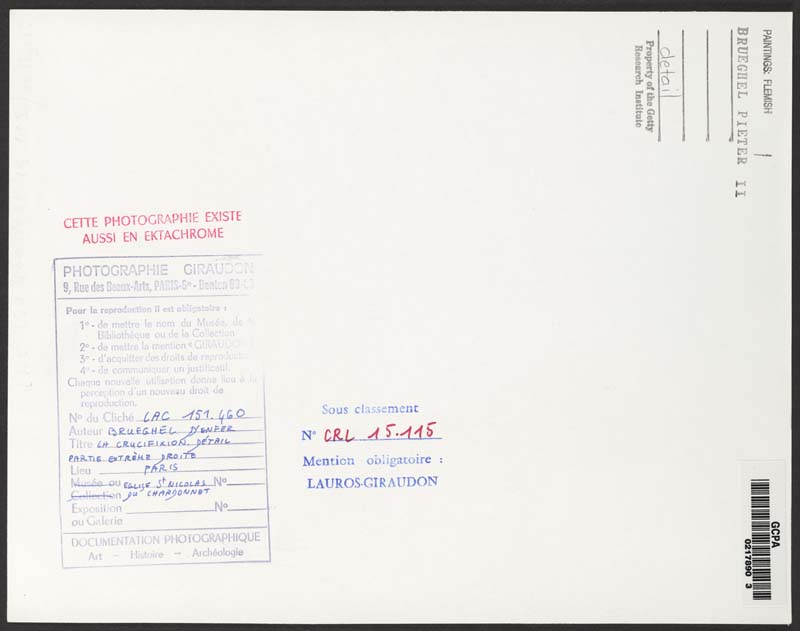 PAINTINGS: FLEMISH
BRUEGHEL PIETER II
detail
Property of the Getty
Research Institute
CETTE PHOTOGRAPHIE EXISTE
AUSSI EN EKTACHROME
PHOTOGRAPHIE GIRAUDON
9, Rue des Beaux-Arts, PARIS-6e - Danton 93-
Pour la reproduction il est obligatoire :
1° - de mettre le nom du Musée, de
Bibliothèque ou de la Collection
2° - de mettre la mention « GIRAUDO
3° - d'acquitter des droits de reproduct
4° - de communiquer un justificatif.
Chaque nouvelle utilisation donne lieu à la
perception d'un nouveau droit de
reproduction.
N° du Cliché LAC 151.460
Auteur BRUEGHEL D'ENFER
Titre LA CRUCIFIXION. DÉTAIL
PARTIE EXTRÊME DROITE
Lieu PARIS
Musée ou EGLISE St NICOLAS N°
Collection DU CHARDONNET
Exposition N°
ou Galerie
DOCUMENTATION PHOTOGRAPHIQUE
Art - Histoire - Archéologie
Sous classement
N° CRL 15.115
Mention obligatoire :
LAUROS-GIRAUDON
GCPA
0217890 3